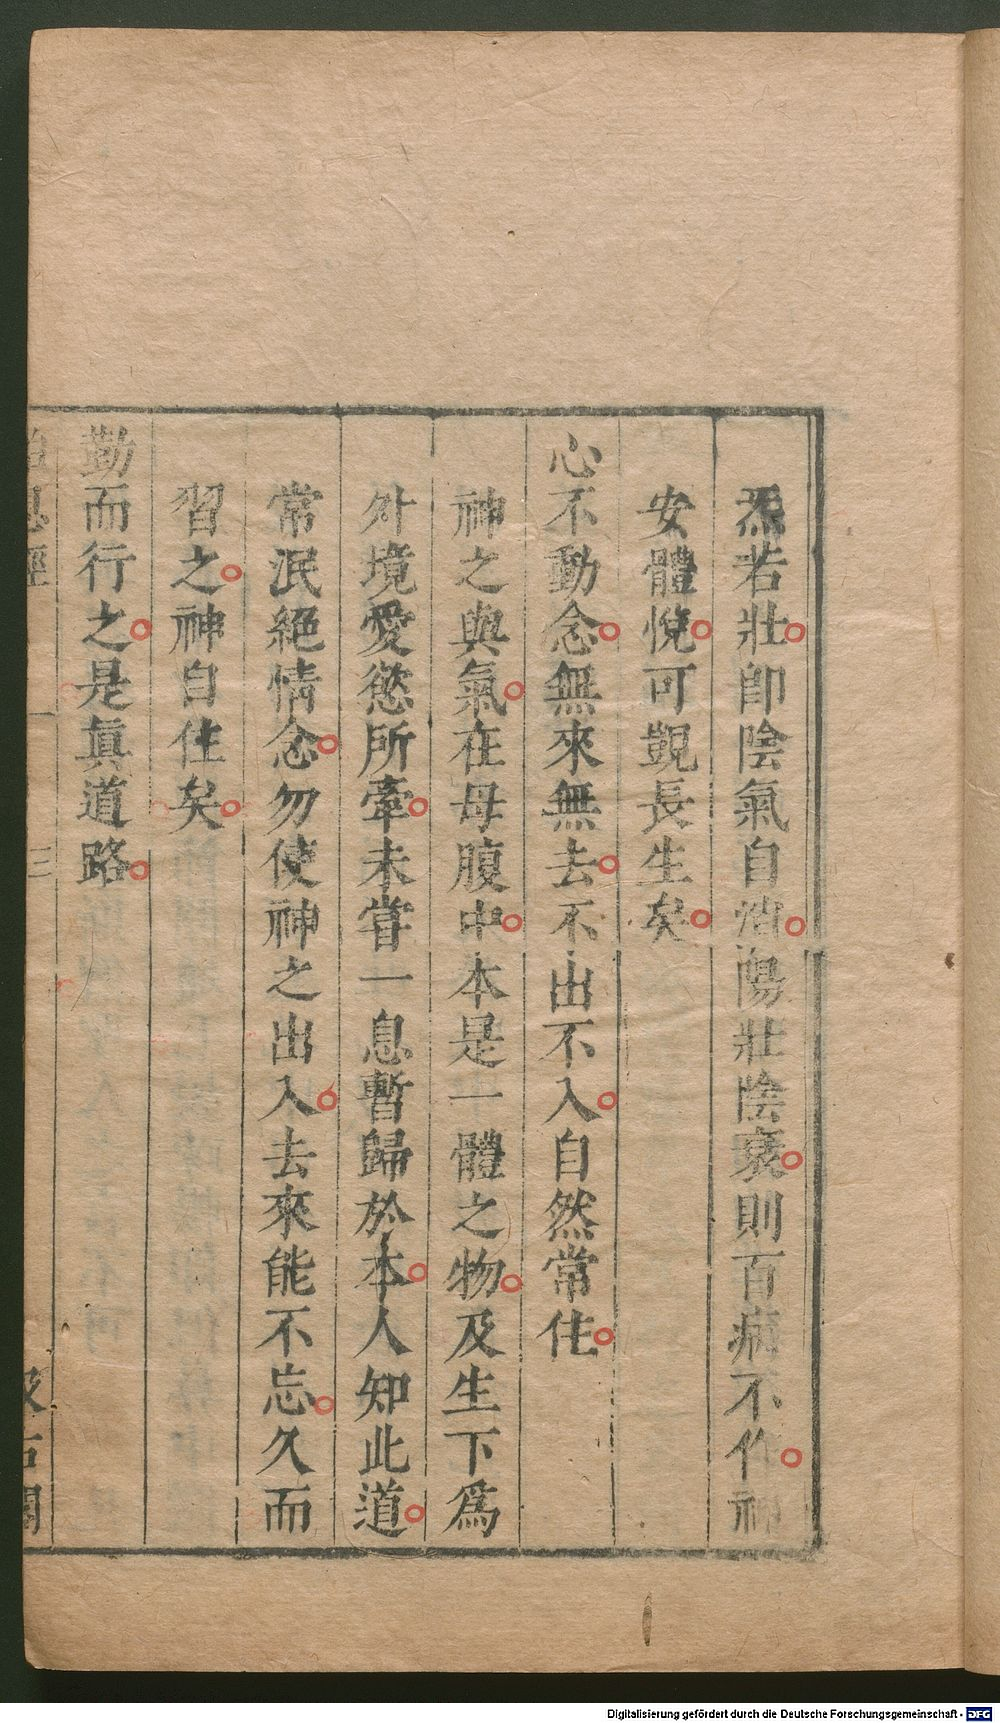 炁若壯卽陰氣自消陽壯陰衰則百病不作神
安體悅可覬長生矣
心不動念無來無去不出不入自然常住
神之與氣在母腹中本是一體之物及生下爲
外境愛慾所牽未嘗一息暫歸於本人知此道
常泯絕情念勿使神之出入去來能不忘久而
習之神自住矣
勤而行之是眞道路
胎息經 三 汲古閣
Digitalisierung gefördert durch die Deutsche Forschungsgemeinschaft - DFG